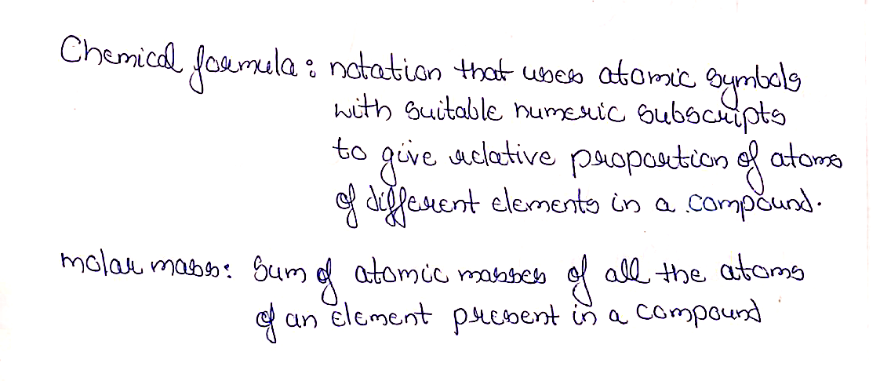 Chemical formula: notation that uses atomic symbols
with suitable numeric subscripts
to give relative proportion of atoms
of different elements in a compound.
molar mass: Sum of atomic masses of all the atoms
of an element present in a compound